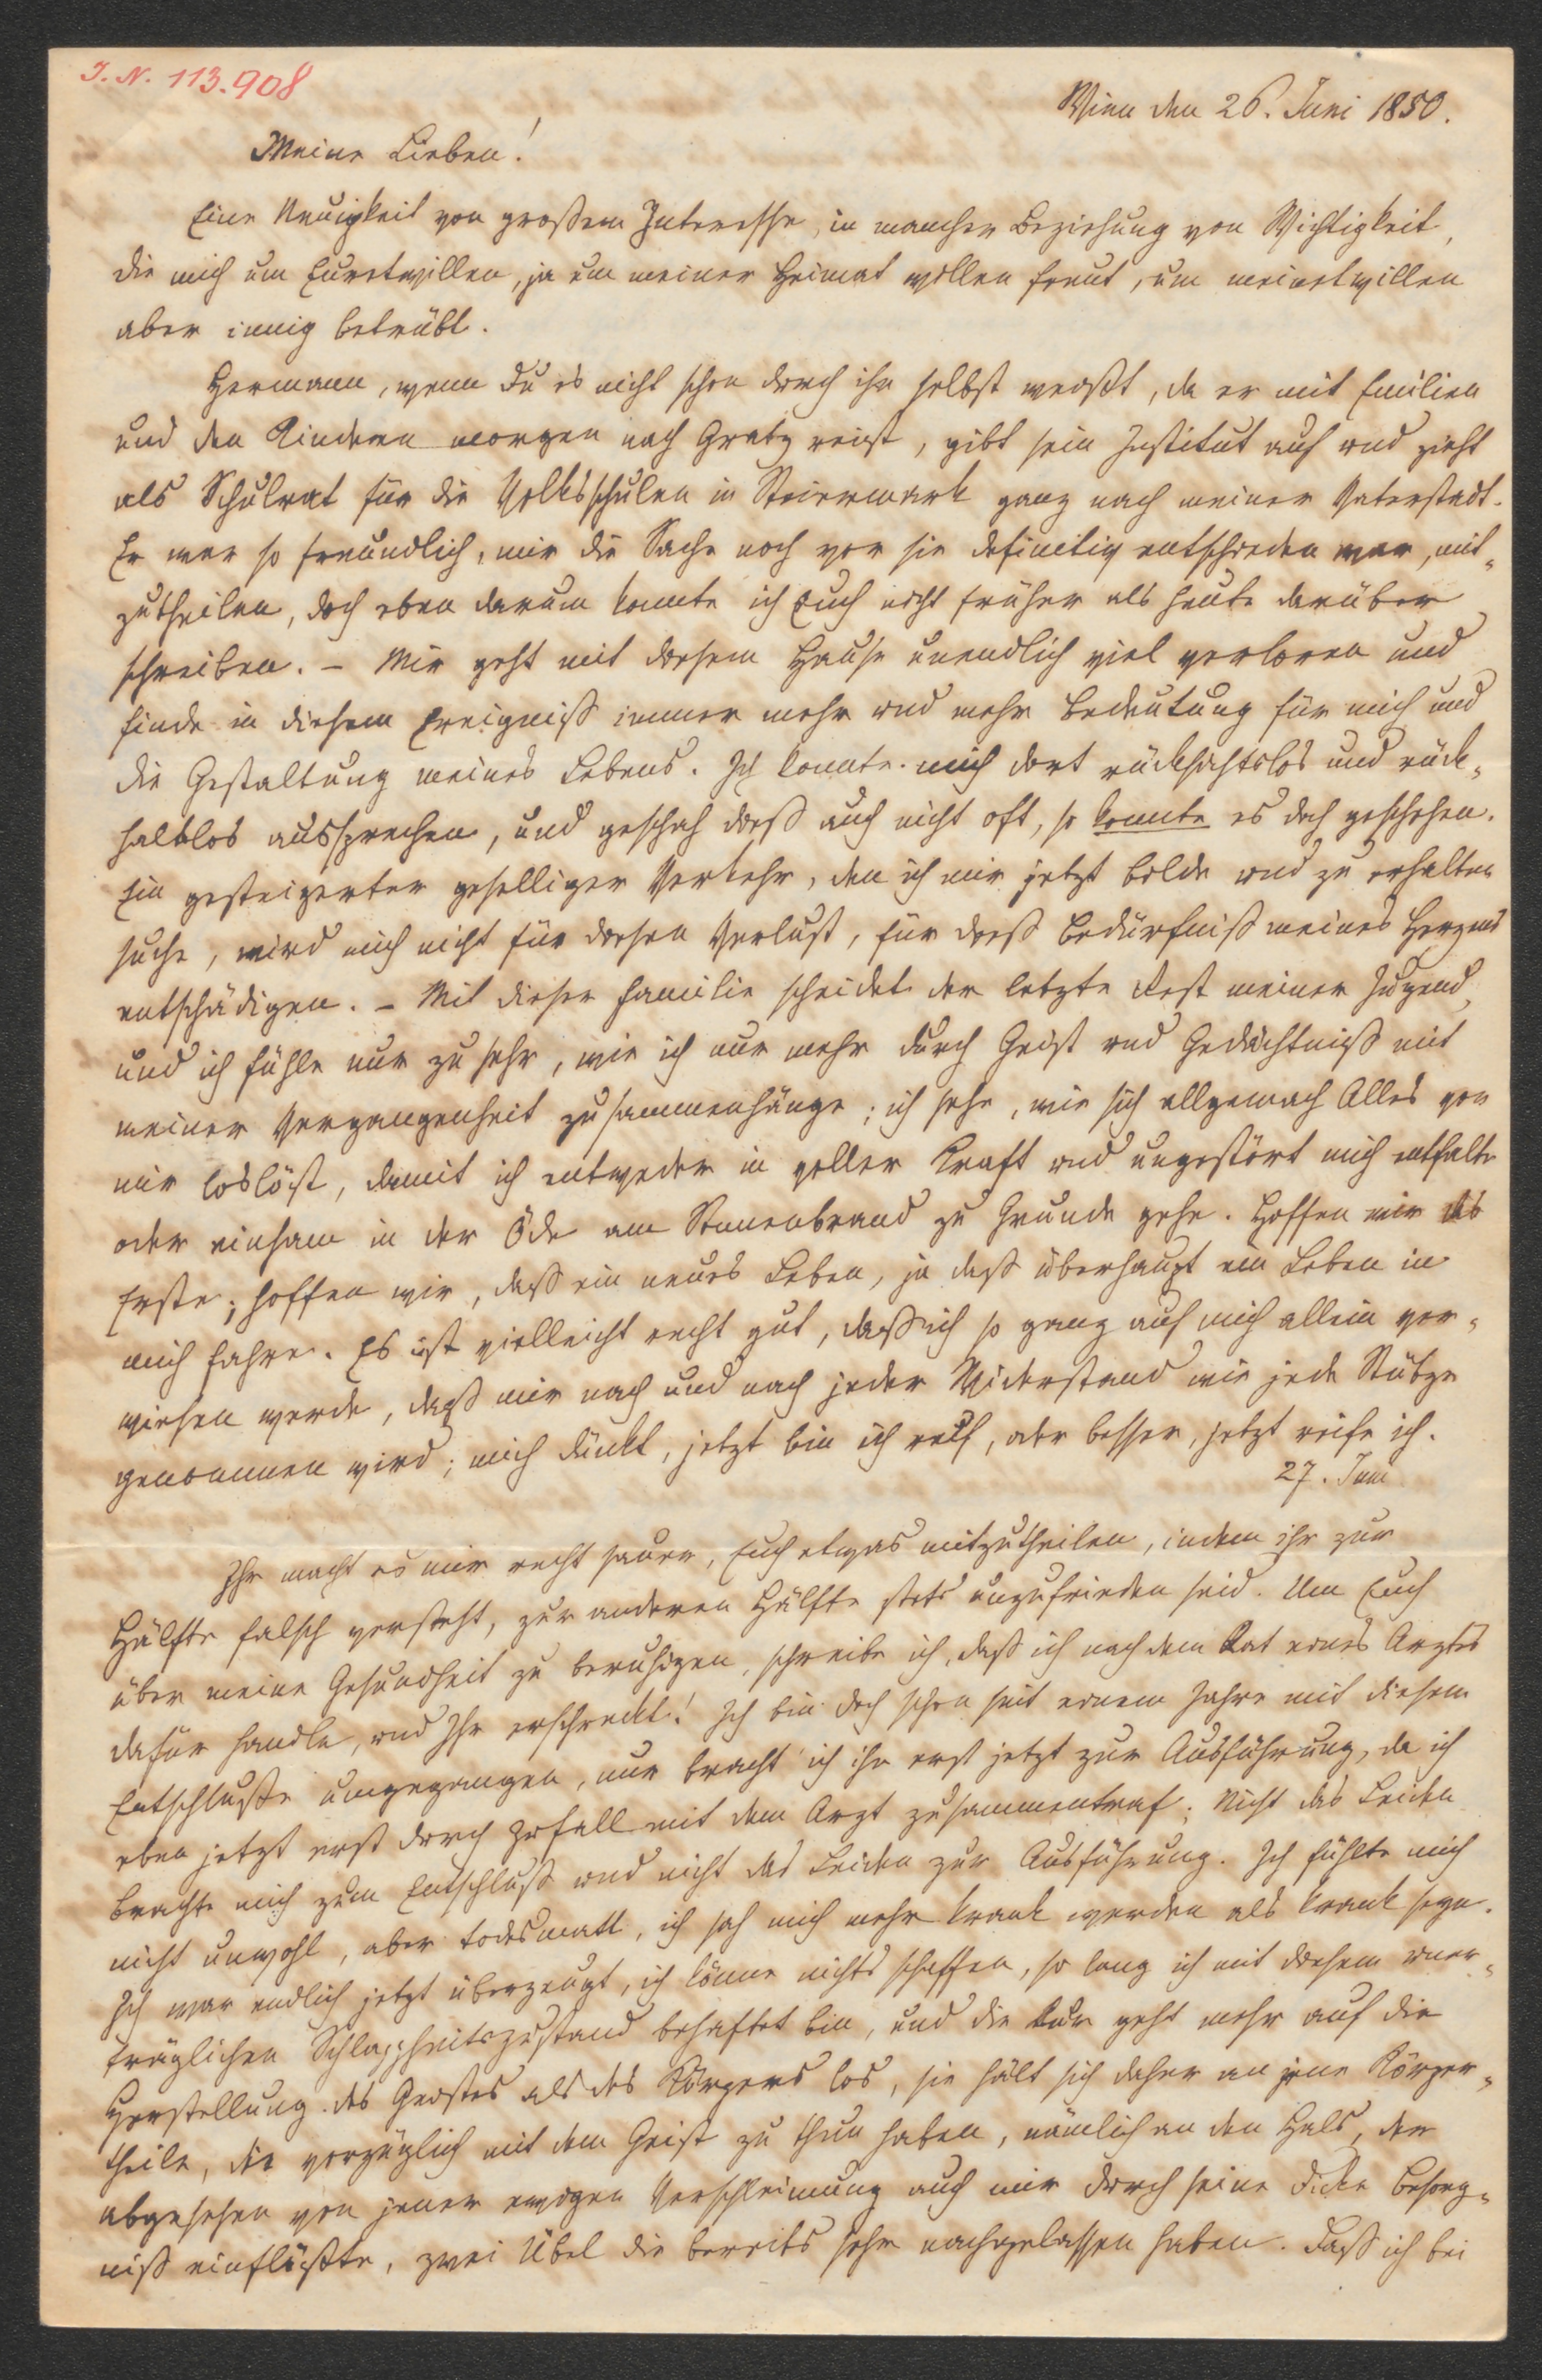 I. N. 113.908
Wien den 26. Juni 1850.
Meine Lieben!
Eine Neuigkeit von großem Interesse, in mancher Beziehung von Wichtigkeit,
die mich um Euretwillen, ja um meiner Heimat willen freut, um meinetwillen
aber innig betrübt.
Hermann, wenn Du es nicht schon durch ihn selbst weißt, da er mit Emilien
und den Kindern morgen nach Gratz reist, gibt sein Institut auf und zieht
als Schulrat für die Volksschulen in Steiermark ganz nach meiner Vaterstadt.
Er war so freundlich, mir die Sache noch vor sie definitiv entschieden war, mit„
zutheilen, doch eben darum konnte ich Euch nicht früher als heute darüber
schreiben. – Mir geht mit diesem Hause unendlich viel verloren und
finde in diesem Ereigniß immer mehr und mehr Bedeutung für mich und
die Gestaltung meines Lebens. Ich konnte mich dort rücksichtslos und rück„
haltlos aussprechen, und geschah dieß auch nicht oft, so konnte es doch geschehen.
Ein gesteigerter geselliger Verkehr, den ich mir jetzt bilde und zu erhalten
suche, wird mich nicht für diesen Verlust, für dieß Bedürfniß meines Herzens
entschädigen. – Mit dieser Familie scheidet der letzte Rest meiner Jugend,
und ich fühle nur zu sehr, wie ich nur mehr durch Geist und Gedächtniß mit
meiner Vergangenheit zusammenhänge; ich sehe, wie sich allgemach Alles von
mir loslöst, damit ich entweder in voller Kraft und ungestört mich entfalte
oder einsam in der Öde am Sonnenbrand zu Grunde gehe. Hoffen wir das
Erste; hoffen wir, daß ein neues Leben, ja daß überhaupt ein Leben in
mich fahre. Es ist vielleicht recht gut, daß ich so ganz auf mich allein ver„
wiesen werde, daß mir nach und nach jeder Widerstand wie jede Stütze
genommen wird; mich dünkt, jetzt bin ich reif, oder besser, jetzt reife ich.
27. Juni
Ihr macht es mir recht sauer, Euch etwas mitzutheilen, indem ihr zur
Hälfte falsch versteht, zur anderen Hälfte stets unzufrieden seid. Um Euch
über meine Gesundheit zu beruhigen, schreibe ich, daß ich nach dem Rat eines Arztes
dafür handle, und Ihr erschreckt! Ich bin doch schon seit einem Jahre mit diesem
Entschluße umgegangen, nur bracht' ich ihn erst jetzt zur Ausführung, da ich
eben jetzt erst durch Zufall mit dem Arzt zusammentraf. Nicht das Leiden
brachte mich zum Entschluß und nicht das Leiden zur Ausführung. Ich fühlte mich
nicht unwohl, aber todesmatt, ich sah mich mehr krank werden als krank seyn.
Ich war endlich jetzt überzeugt, ich könne nichts schaffen, so lang ich mit diesem uner„
träglichen Schlappheitszustand behaftet bin, und die Kur geht mehr auf die
Herstellung des Geistes als des Körpers los, sie hält sich daher an jene Körper„
theile, die vorzüglich mit dem Geist zu thun haben, nämlich an den Hals, der
abgesehen von jener ewigen Verschleimung auch mir durch seine Dicke Besorg„
niß einflößte, zwei Übel die bereits sehr nachgelassen haben. Daß ich bei